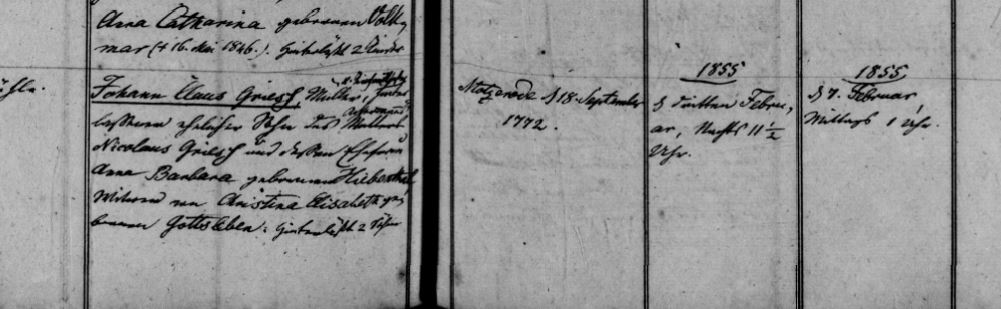 Anna Catharina geborenen Volk,
mar († 16. Mai 1846.). Hinterläßt 2 Kinder
Johann Claus Griesh, Müller, hinter
lassener ehelicher Sohn des Müllers
Nicolaus Griesh und dessen Ehefrau
Anna Barbara geborenen Hiebenthal
Witwer von Christina Elisabeth ge,
borenen Gottsleben. Hinterläßt 2 Söhne
Motzerode d 18. September
1772.
1855
d dritten Febru,
ar, Nachts 11 ½
Uhr.
1855
d 7. Februar,
Mittags 1 Uhr.